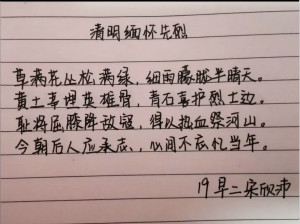 清明缅怀先烈
草满花丛松满绿，细雨朦胧半晴天。
黄土幸埋英雄骨，青石喜护烈士边。
耻将屈膝降敌寇，得以热血祭河山。
今朝后人应承志，心间不忘忆当年。
19早二宋欣沛